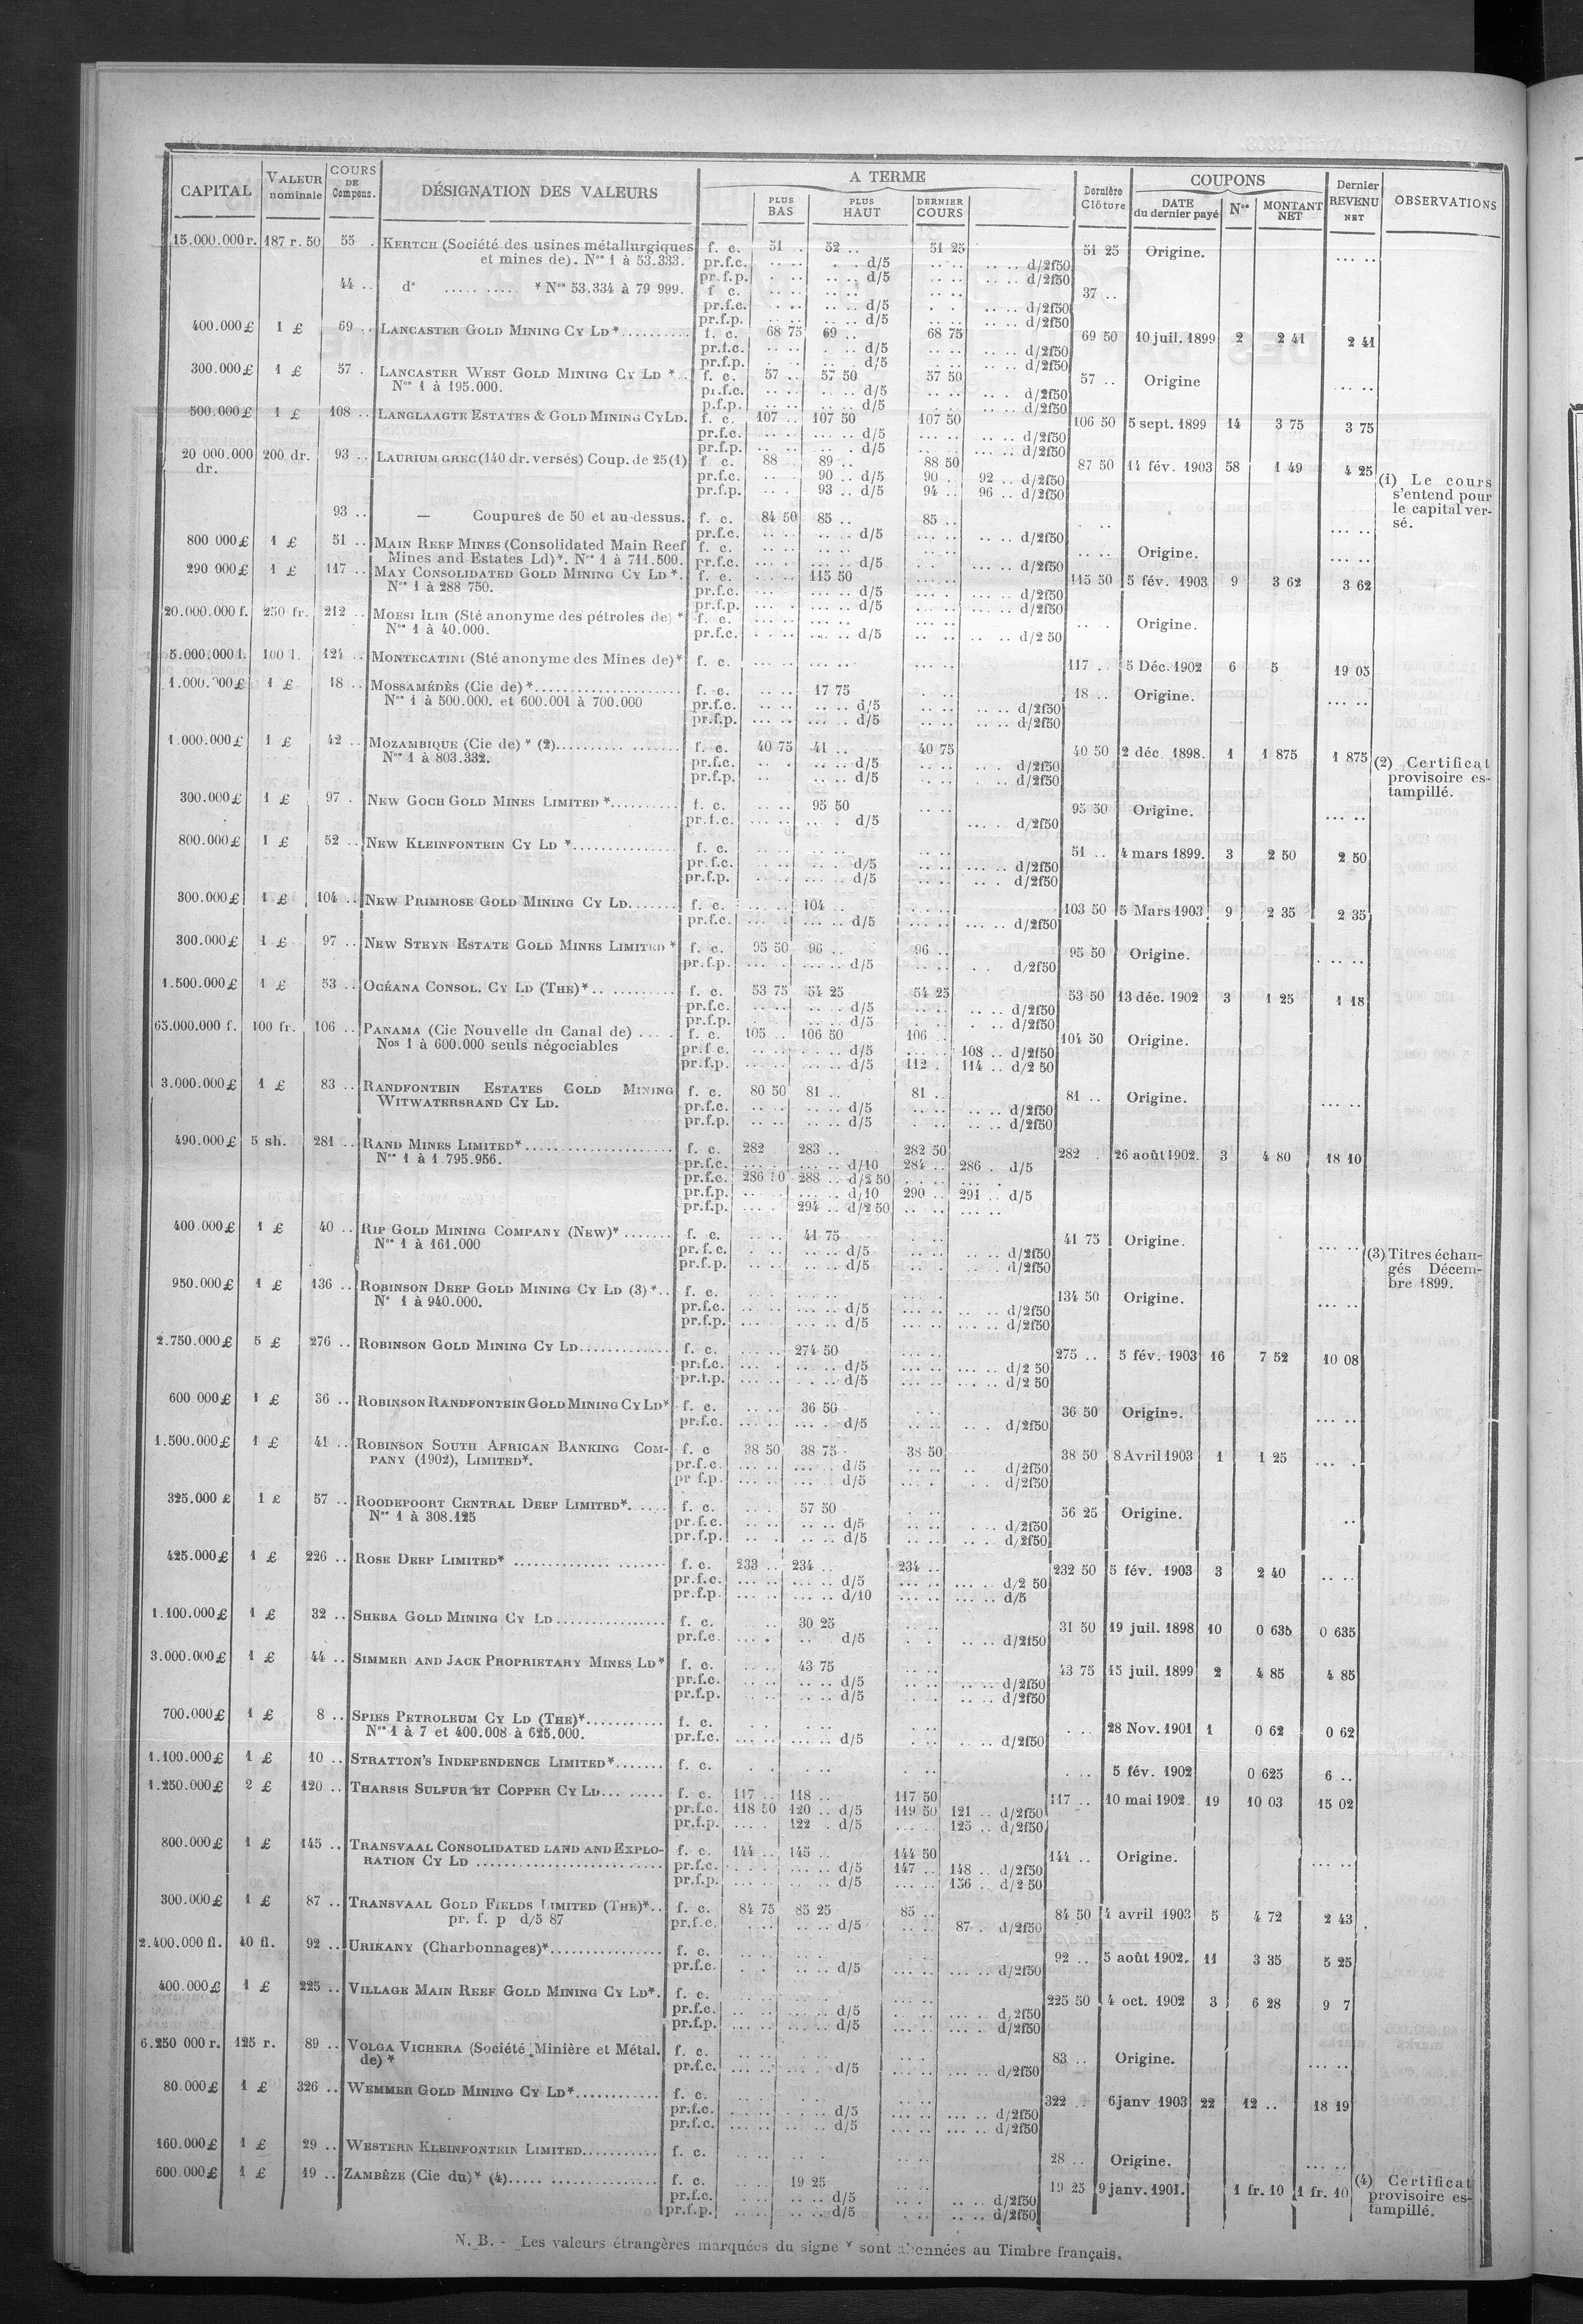 CAPITAL VALEUR nominale COURS DE Compens. DÉSIGNATION DES VALEURS A TERME Dernière Clôture COUPONS Dernier REVENU NET OBSERVATIONS
PLUS BAS PLUS HAUT DERNIER COURS DATE du dernier payé Nos MONTANT NET
15.000.000 r. 187 r. 50 55 . KERTCH (Société des usines métallurgiques f. c. 51 . 52 .. 51 25 51 25 Origine. ... ..
et mines de). Nos 1 à 53.333. pr.f.c. .. .. . . d/5 .. .. .. .. d/2f50
pr.f.p. . .. .. .. d/5 .. .. .. .. d/2f50
44 .. do ..... ..... * Nos 53.334 à 79 999. f c. .. .. .. .. .. .. 37 ..
pr.f.c. . .. .. .. d/5 . . .. .. d/2f50
pr.f.p. .. .. .. .. d/5 .. .. .. .. d/2f50
400.000 £ 1 £ 69 .. LANCASTER GOLD MINING CY LD*.......... f. c. 68 75 69 .. 68 75 69 50 10 juil. 1899 2 2 41 2 41
pr.f.c. .. .. . .. d/5 .. .. .. .. d/2f50
pr.f.p. .. . .. .. d/5 .. .. .. .. d/2f50
300.000 £ 1 £ 57 . LANCASTER WEST GOLD MINING CY LD *.. f. c. 57 .. 57 50 57 50 57 .. Origine ... ..
Nos 1 à 195.000. pr.f.c. .. .. .. .. d/5 .. .. . .. d/2f50
p.f.p. .. .. .. .. d/5 . .. .. .. d/2f50
500.000 £ 1 £ 108 .. LANGLAAGTE ESTATES & GOLD MINING CY LD. f. c. 107 .. 107 50 107 50 106 50 5 sept. 1899 14 3 75 3 75
pr.f.c. .. . ... .. d/5 ... .. .. .. d/2f50
pr.f.p. .. .. .. . d/5 .. .. ... .. d/2f50
20 000.000 dr. 200 dr. 93 .. LAURIUM GREC (140 dr. versés) Coup. de 25 (1) f c. 88 89 .. 88 50 87 50 14 fév. 1903 58 1 49 4 25
pr.f.c. .. . 90 .. d/5 90 . 92 .. d/2f50
pr.f.p. .. . 93 .. d/5 94 .. 96 .. d/2f50
(1) Le cours
s'entend pour
le capital ver-
sé.
93 .. — Coupures de 50 et au-dessus. f. c. 84 50 85 .. 85 .. . .. ... ..
pr.f.c. .. .. .. .. d/5 .. .. .. .. d/2f50
800 000 £ 1 £ 51 .. MAIN REEF MINES (Consolidated Main Reef f. c. .. .. .. .. .. .. .. .. Origine. ... ..
Mines and Estates Ld)*. Nos 1 à 711.500. pr.f.c. ... . ... .. d/5 .. .. ... .. d/2f50
290 000 £ 1 £ 117 .. MAY CONSOLIDATED GOLD MINING CY LD *. f. c. .. .. 115 50 ... .. 115 50 5 fév. 1903 9 3 62 3 62
Nos 1 à 288 750. pr.f.c. ... .. ... .. d/5 .. .. ... .. d/2f50
pr.f.p. ... . ... .. d/5 ... .. ... .. d/2f50
20.000.000 f. 250 fr. 212 .. MOESI ILIR (Sté anonyme des pétroles de) * f. c. ... .. ... .. ... .. .. . Origine.
Nos 1 à 40.000. pr.f.c. . . .. ... .. d/5 .. .. .. .. d/2 50
5.000.000 l. 100 l. 124 .. MONTECATINI (Sté anonyme des Mines de)* f. c. ... .. ... .. ... .. 117 .. 5 Déc. 1902 6 5 19 05
1.000.000 £ 1 £ 18 .. MOSSAMÉDÈS (Cie de) *................... f. c. .. .. 17 75 . .. 18 .. Origine. ... ..
Nos 1 à 500.000. et 600.001 à 700.000 pr.f.c. .. .. .. .. d/5 .. .. .. .. d/2f50
pr.f.p. ... .. ... .. d/5 .. .. .. .. d/2f50
1.000.000 £ 1 £ 42 .. MOZAMBIQUE (Cie de) * (2).......... ....... f. c. 40 75 41 .. 40 75 40 50 2 déc. 1898. 1 1 875 1 875
Nos 1 à 803.332. pr.f.c. .. . .. .. d/5 .. .. .. . d/2f50
pr.f.p. .. .. .. d/5 .. .. .. .. d/2f50
(2) Certificat
provisoire es-
tampillé.
300.000 £ 1 £ 97 . NEW GOCH GOLD MINES LIMITED *.......... f. c. .. .. 95 50 .. .. 95 50 Origine. ... ..
pr.f.c. ... .. .. . d/5 ... .. d/2f50
800.000 £ 1 £ 52 .. NEW KLEINFONTEIN CY LD *............... f. c. .. .. .. .. .. .. 51 .. 4 mars 1899. 3 2 50 2 50
pr.f.c. .. .. ... .. d/5 .. .. ... .. d/2f50
pr.f.p. .. .. ... .. d/5 .. .. .. . d/2f50
300.000 £ 1 £ 104 .. NEW PRIMROSE GOLD MINING CY LD....... f. c. ... .. 104 .. . . .. 103 50 5 Mars 1903 9 2 35 2 35
pr.f.c. ... . ... .. d/5 ... .. ... .. d/2f50
300.000 £ 1 £ 97 .. NEW STEYN ESTATE GOLD MINES LIMITED * f. c. 95 50 96 .. 96 .. 95 50 Origine. . .. ..
pr.f.p. ... . ... .. d/5 .. .. . . d/2f50
1.500.000 £ 1 £ 53 .. OCÉANA CONSOL. CY LD (THE)*.. .......... f. c. 53 75 54 25 54 25 53 50 13 déc. 1902 3 1 25 1 18
pr.f.c. .. .. .. .. d/5 .. .. .. .. d/2f50
pr.f.p. . .. .. d/5 . . . .. d/2f50
65.000.000 f. 100 fr. 106 .. PANAMA (Cie Nouvelle du Canal de) .... . f. c. 105 .. 106 50 106 .. 104 50 Origine.
Nos 1 à 600.000 seuls négociables pr.f c. .. .. .. .. d/5 ... .. 108 .. d/2f50
pr.f.p. ... .. ... .. d/5 112 . 114 .. d/2 50
3.000.000 £ 1 £ 83 .. RANDFONTEIN ESTATES GOLD MINING f. c. 80 50 81 .. 81 .. 81 .. Origine. ... ..
WITWATERSRAND CY LD. pr.f.c. .. .. .. .. d/5 .. .. .. .. d/2f50
pr.f.p. .. .. .. .. d/5 .. .. .. .. d/2f50
490.000 £ 5 sh. 281 .. RAND MINES LIMITED*..................... f. c. 282 283 .. 282 50 282 . 26 août 1902. 3 4 80 18 10
Nos 1 à 1.795.956. pr.f.c. ... . ... .. d/10 284 .. 286 . d/5
pr.f.c. 286 50 288 .. d/2 50 . . .. ... .
pr.f.p. ... . ... .. d/10 290 .. 291 .. d/5
pr.f.p. ... . 294 .. d/2 50 .. .. ... ..
400.000 £ 1 £ 40 .. RIP GOLD MINING COMPANY (NEW)* ....... f. c. .. .. 41 75 . .. 41 75 Origine. ... ..
Nos 1 à 161.000 pr. f. c. . .. .. .. d/5 .. .. .. .. d/2f50
pr.f.p. .. .. .. .. d/5 . .. .. .. d/2f50
(3) Titres échan-
gés Décem-
bre 1899.
950.000 £ 1 £ 136 .. ROBINSON DEEP GOLD MINING CY LD (3) *.. f. c. ... .. ... .. ... .. 134 50 Origine. ... ..
No 1 à 940.000. pr.f.c. .. .. ... .. d/5 .. .. .. .. d/2f50
pr.f.p. .. .. ... .. d/5 .. .. .. .. d/2f50
2.750.000 £ 5 £ 276 .. ROBINSON GOLD MINING CY LD............ f. c. ... .. 274 50 ... .. 275 .. 5 fév. 1903 16 7 52 10 08
pr.f.c. ... . ... .. d/5 ... .. ... .. d/2 50
pr.f.p. ... .. . .. .. d/5 ... .. ... .. d/2 50
600 000 £ 1 £ 36 .. ROBINSON RANDFONTEIN GOLD MINING CY LD* f. c. .. .. 36 50 . .. 36 50 Origine. ... ..
pr.f.c. ... .. ... .. d/5 .. .. d/2f50
1.500.000 £ 1 £ 41 .. ROBINSON SOUTH AFRICAN BANKING COM- f. c 38 50 38 75 38 50 38 50 8 Avril 1903 1 1 25 ... .
PANY (1902), LIMITED*. pr.f.c. ... .. ... .. d/5 .. .. .. d/2f50
pr f.p. ... .. ... .. d/5 .. .. . .. d/2f50
325.000 £ 1 £ 57 .. ROODEPOORT CENTRAL DEEP LIMITED*..... f. c. .. . 57 50 .. .. 56 25 Origine. ..
Nos 1 à 308.125 pr.f.c. .. .. .. .. d/5 .. .. . .. d/2f50
pr.f.p. .. . .. .. d/5 .. .. d/2f50
425.000 £ 1 £ 226 .. ROSE DEEP LIMITED* .............. ....... f. c. 233 .. 234 .. 234 .. 232 50 5 fév. 1903 3 2 40 .. ..
pr.f.c. ... .. ... .. d/5 ... .. ... .. d/2 50
pr.f.p ... .. ... .. d/10 ... .. ... .. d/5
1.100.000 £ 1 £ 32 .. SHEBA GOLD MINING CY LD................ f. c. .. .. 30 25 .. .. 31 50 19 juil. 1898 10 0 635 0 635
pr.f.c. ... . .. d/5 . . .. .. d/2f50
3.000.000 £ 1 £ 44 .. SIMMER AND JACK PROPRIETARY MINES LD* f. c. .. .. 43 75 .. .. 43 75 15 juil. 1899 2 4 85 4 85
pr.f.c. .. .. .. .. d/5 .. .. .. .. d/2f50
pr.f.p. .. .. .. .. d/5 . .. .. .. d/2f50
700.000 £ 1 £ 8 .. SPIES PETROLEUM CY LD (THE)*........... f. c. . . .. .. .. . . .. 28 Nov. 1901 1 0 62 0 62
Nos 1 à 7 et 400.008 à 625.000. pr.f.c. ... .. ... .. d/5 . .. .. .. d/2f50
1.100.000 £ 1 £ 10 .. STRATTON'S INDEPENDENCE LIMITED*....... f. c. . . . .. . .. . .. 5 fév. 1902 0 625 6 ..
1.250.000 £ 2 £ 120 .. THARSIS SULFUR ET COPPER CY LD... ...... f. c. 117 .. 118 .. 117 50 117 .. 10 mai 1902. 19 10 03 15 02
pr.f.c. 118 50 120 .. d/5 119 50 121 .. d/2f50
pr.f.p. ... . 122 . d/5 ... .. 125 .. d/2f50
800.000 £ 1 £ 145 .. TRANSVAAL CONSOLIDATED LAND AND EXPLO- f. c. 144 .. 145 .. 144 50 144 .. Origine. ... ..
RATION CY LD ........................... pr.f.c. . . ... .. d/5 147 .. 148 .. d/2f50
pr.f.p. .. .. ... .. d/5 ... .. 156 .. d/2 50
300.000 £ 1 £ 87 .. TRANSVAAL GOLD FIELDS LIMITED (THE)*.. f. c. 84 75 85 25 85 .. 84 50 4 avril 1903 5 4 72 2 43
pr. f. p d/5 87 pr.f.c. . .. .. .. d/5 .. . 87 . d/2f50
2.400.000 fl. 10 fl. 92 .. URIKANY (Charbonnages)*................ f. c. 92 .. 5 août 1902. 11 3 35 5 25
pr.f.c. . . .. .. d/5 ... .. ... .. d/2f50
400.000 £ 1 £ 225 .. VILLAGE MAIN REEF GOLD MINING CY LD*. f. c. ... .. ... .. ... .. 225 50 4 oct. 1902 3 6 28 9 7
pr.f.c. .. .. ... .. d/5 ... .. ... .. d/2f50
pr.f.p. ... .. ... .. d/5 ... .. ... .. d/2f50
6.250 000 r. 125 r. 89 .. VOLGA VICHERA (Société Minière et Métal. f. c. .. .. .. .. . . . 83 .. Origine. ... ..
de) * pr.f.c. .. .. .. .. d/5 .. .. d/2f50
80.000 £ 1 £ 326 .. WEMMER GOLD MINING CY LD*............ f. c. ... .. ... .. ... .. 322 .. 6 janv 1903 22 12 .. 18 19
pr.f.c. ... .. ... .. d/5 ... .. ... .. d/2f50
pr.f.c. ... .. ... .. d/5 ... .. ... .. d/2f50
160.000 £ 1 £ 29 .. WESTERN KLEINFONTEIN LIMITED........... f. c. .. .. .. .. .. 28 .. Origine. ... ..
600.000 £ 1 £ 19 .. ZAMBÈZE (Cie du)* (4)..... ................ f. c. .. 19 25 .. .. 19 25 9 janv. 1901. 1 fr. 10 1 fr. 10
pr.f.c. .. .. .. .. d/5 . .. .. .. d/2f50
pr.f.p. .. .. .. .. d/5 . .. .. .. d/2f50
(4) Certificat
provisoire es-
tampillé.
N. B. - Les valeurs étrangères marquées du signe * sont abonnées au Timbre français.